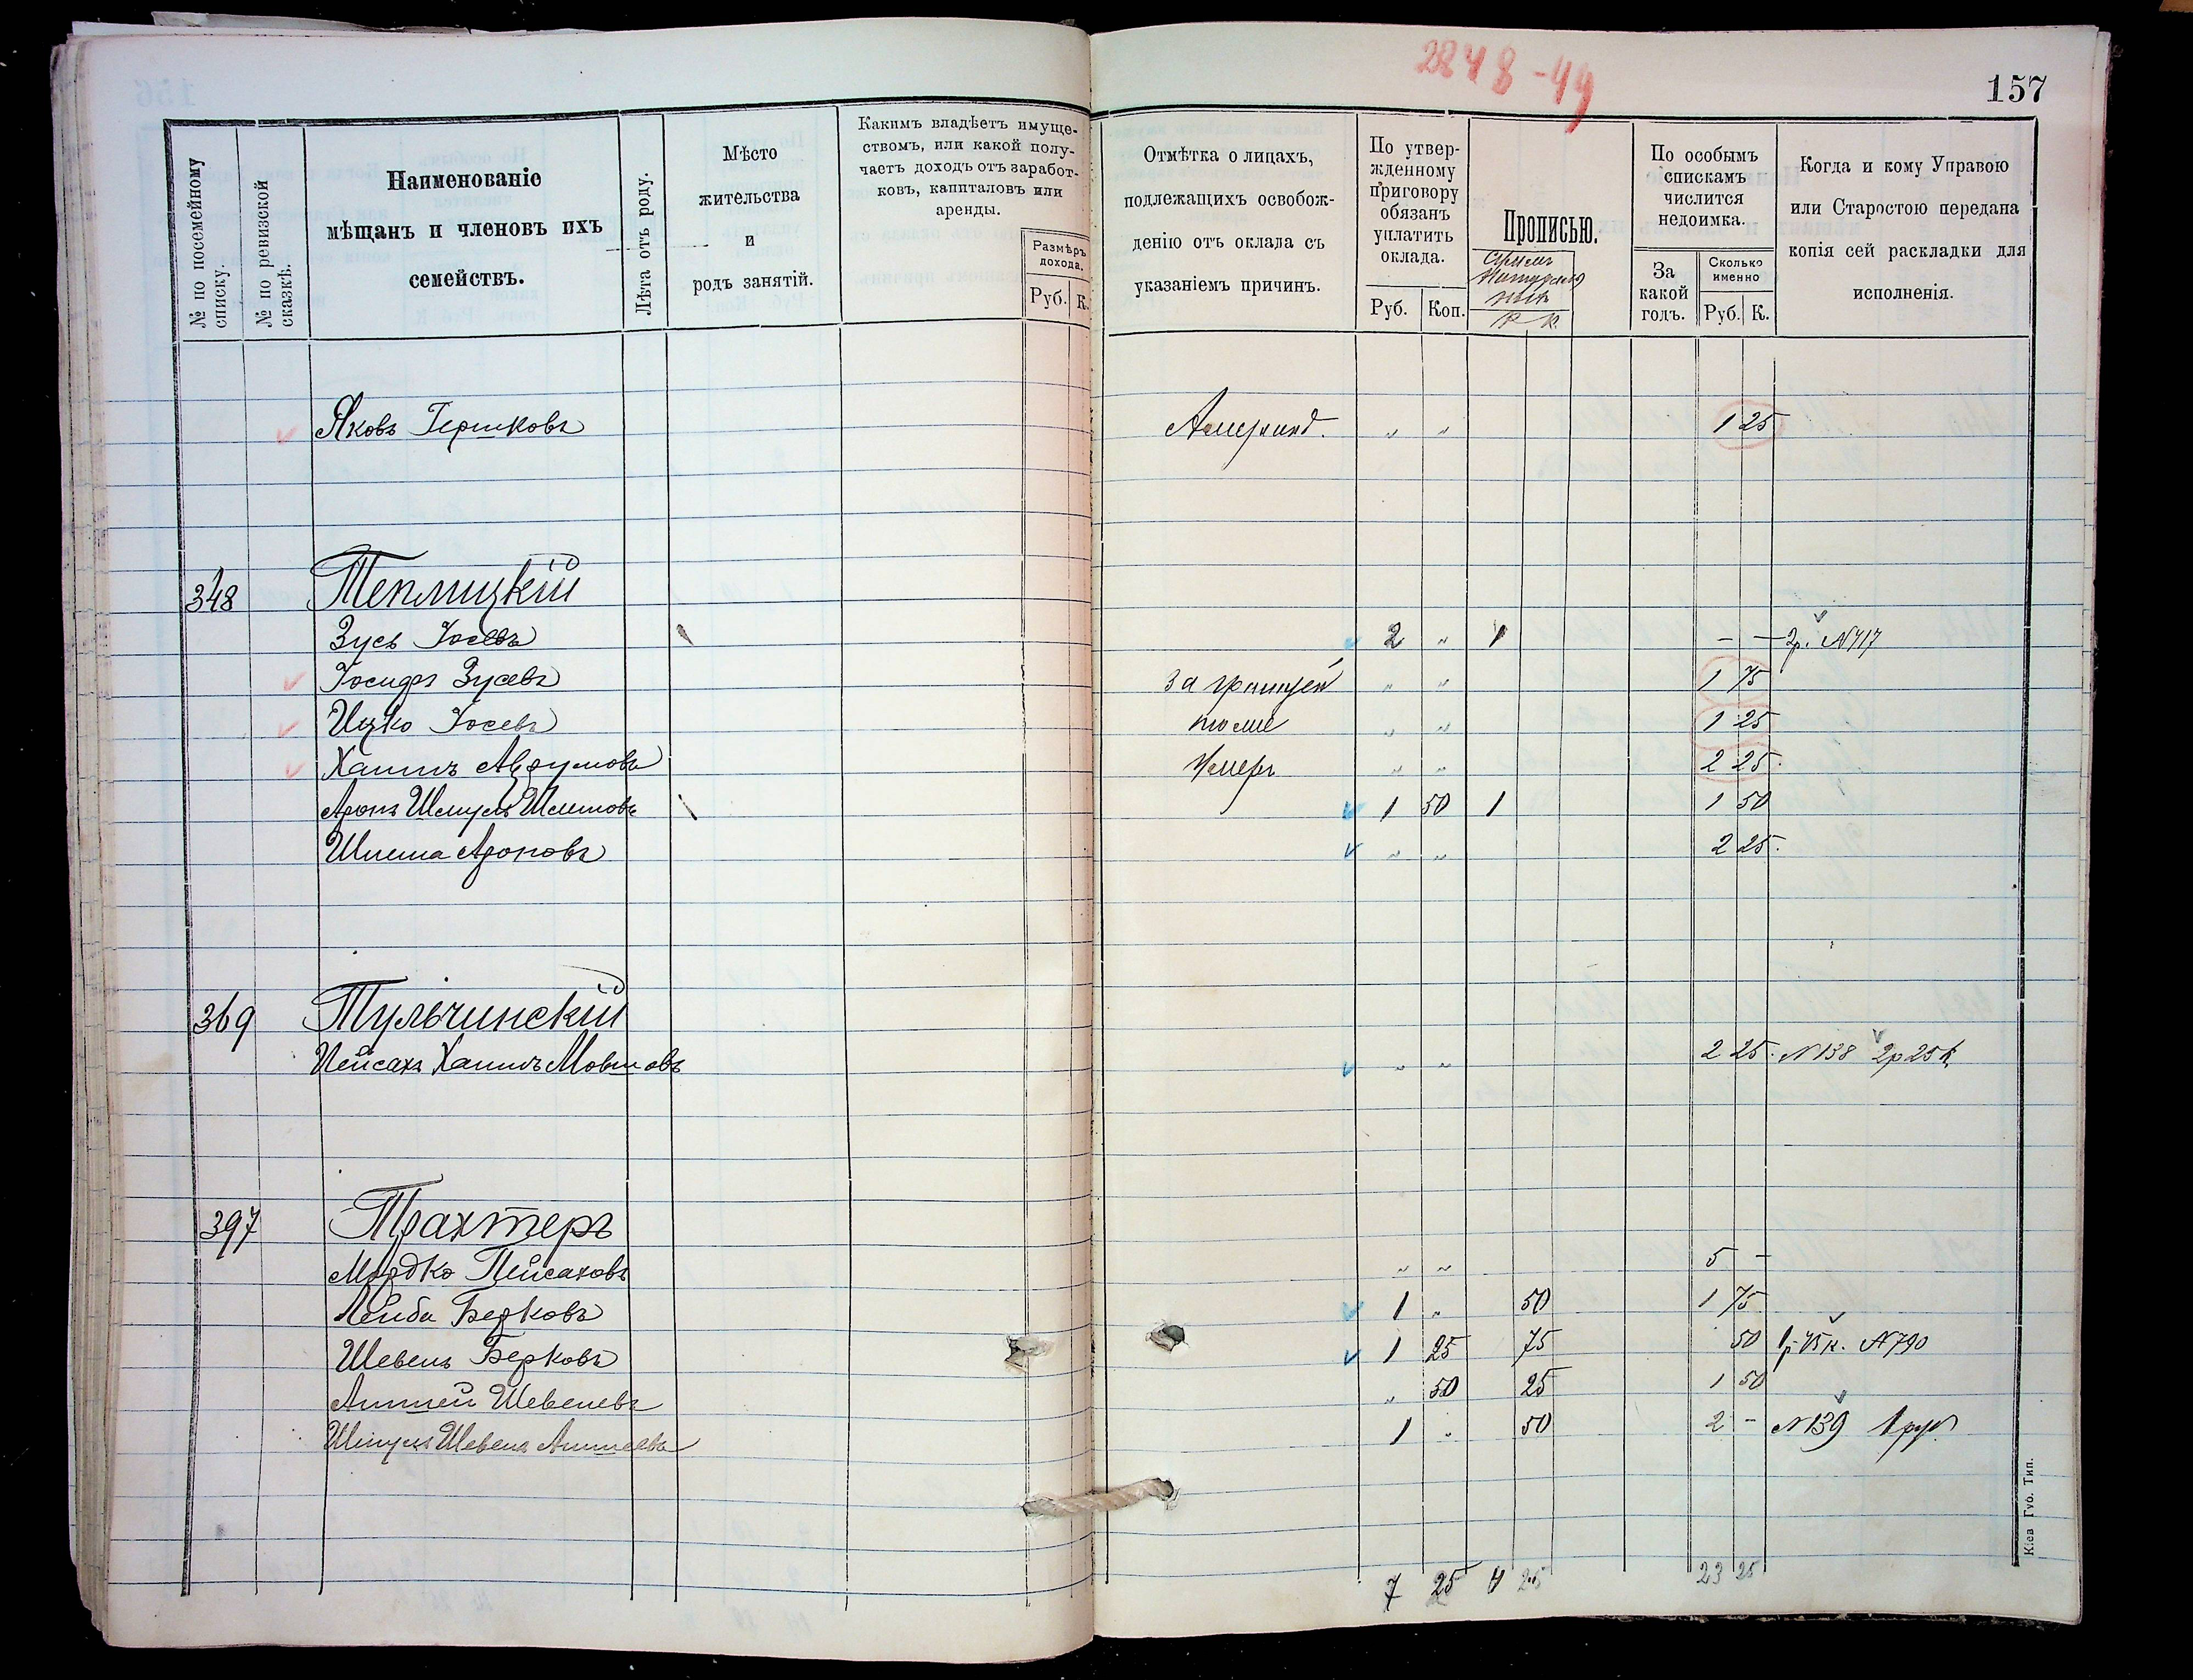 2848-49
157
№ по посемейному списку.
№ по ревизской сказкѣ.
Наименованіе
мѣщанъ и членовъ ихъ
семействъ.
Лѣта отъ роду.
Мѣсто
жительства
и
родъ занятій.
Какимъ владѣетъ имуще-
ствомъ, или какой полу-
чаетъ доходъ отъ заработ-
ковъ, капиталовъ или
аренды.
Размѣръ дохода.
Руб. К.
Отмѣтка о лицахъ,
подлежащихъ освобож-
денію отъ оклада съ
указаніемъ причинъ.
По утвер-
жденному
приговору
обязанъ
уплатить
оклада.
Руб. Коп.
Прописью.
Р К.
По особымъ
спискамъ
числится
недоимка.
За
какой
годъ.
Сколько
именно
Руб. К.
Когда и кому Управою
или Старостою передана
копія сей раскладки для
исполненія.
Яковъ Гершковъ „ „ 1 25
348 Теплицкій
Зусь Іосевъ 2 „ 1 – – 2р. N717
Іосифъ Зусевъ за границей „ „ 1 75
Ицко Іосевъ тоже „ „ 1 25
Хаимъ Аврумовъ Умеръ „ „ 2 25.
Аронъ Шмуль Шлемовъ 1 50 1 1 50
Шлема Ароновъ „ „ 2 25.
369 Тульчинскій
Пейсахъ Хаимъ Мовшовъ „ „ 2 25. N138 2р 25к
397 Трахтеръ
Мордко Пейсаховъ „ „ 5 –
Лейба Берковъ 1 „ 50 1 75
Шевель Берковъ 1 25 75 50 1р 75к. N790
Аншей Шевелевъ „ 50 25 1 50
Шевель Аншеевъ 1 „ 50 2 – N139 1 руб
7 25 4 25 23 25
Кіев Губ. Тип.